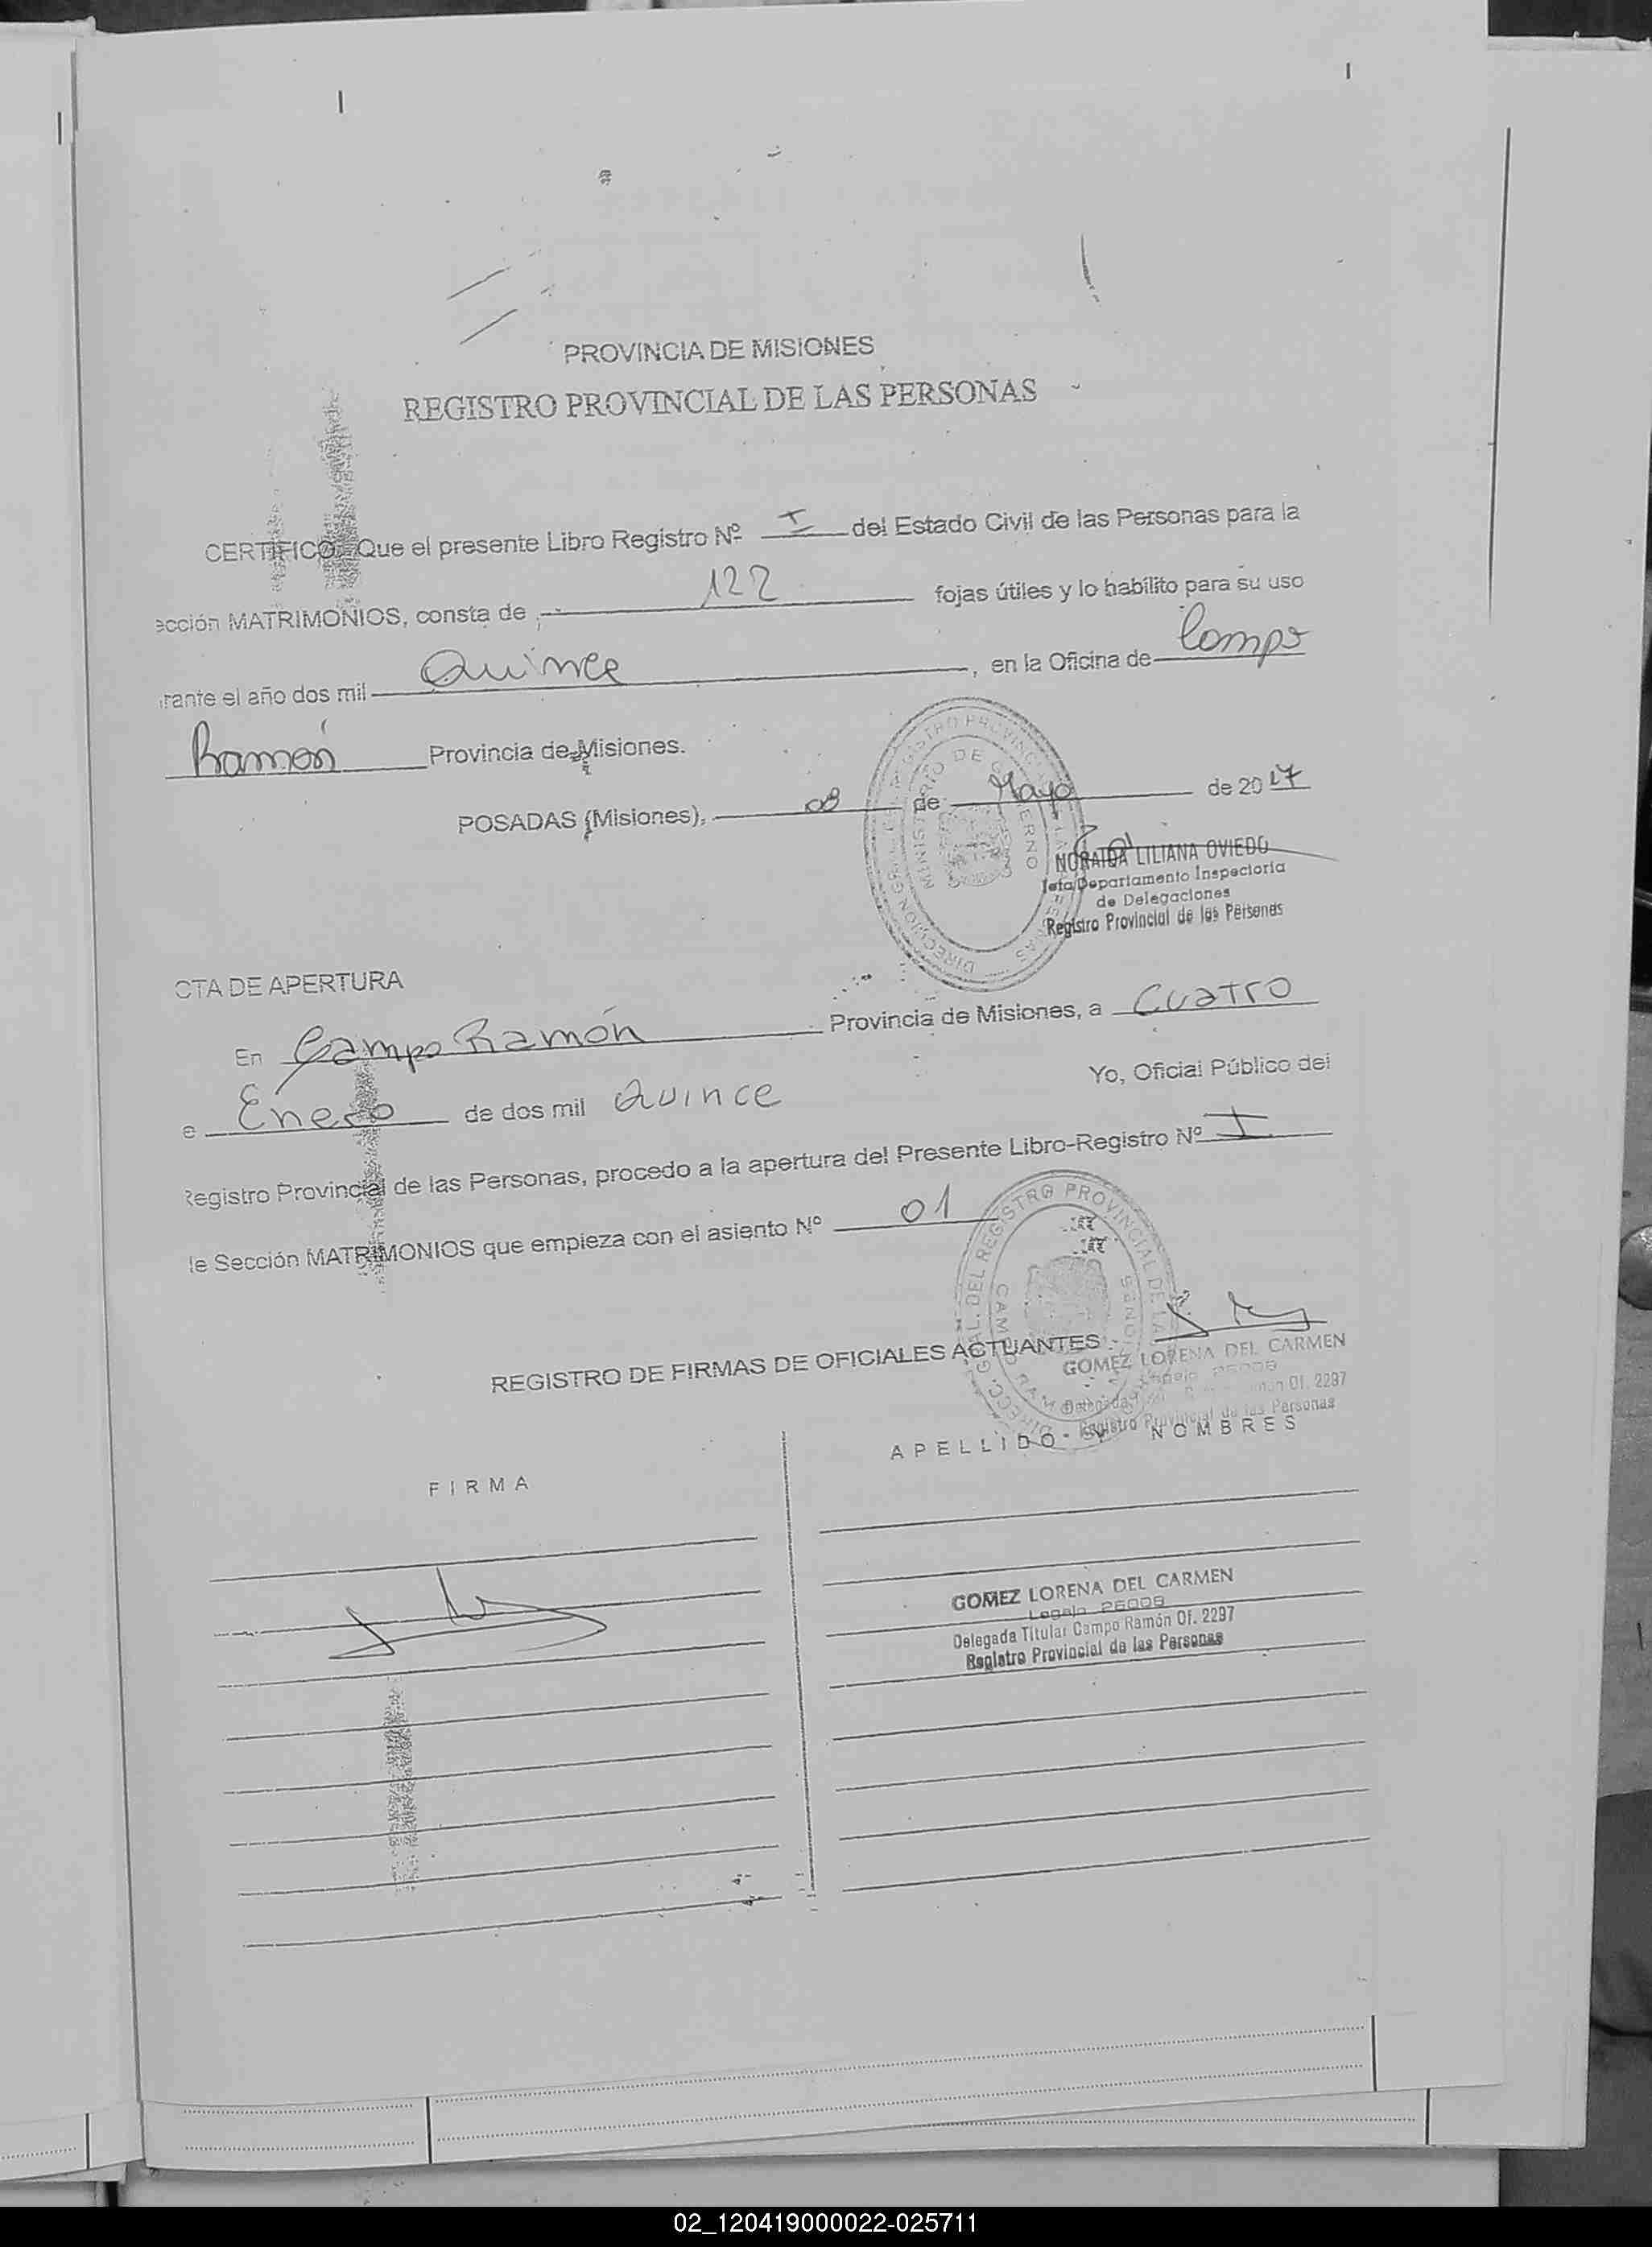 PROVINCIA DE MISIONES
REGISTRO PROVINCIAL DE LAS PERSONAS
CERTIFICO: Que el presente Libro Registro Nº I del Estado Civil de las Personas para la
ección MATRIMONIOS, consta de 122 fojas útiles y lo habilito para su uso
rante el año dos mil Quince, en la Oficina de Campo
Ramón Provincia de Misiones.
POSADAS (Misiones), 08 de Mayo de 2017
NORAIDA LILIANA OVIEDO
Jefa Departamento Inspectoria
de Delegaciones
Registro Provincial de las Personas
CTA DE APERTURA
En Campo Ramón Provincia de Misiones, a Cuatro
e Enero de dos mil Quince Yo, Oficial Público del
Registro Provincial de las Personas, procedo a la apertura del Presente Libro-Registro Nº I
le Sección MATRIMONIOS que empieza con el asiento Nº 01
REGISTRO DE FIRMAS DE OFICIALES ACTUANTES
GOMEZ LORENA DEL CARMEN
Of. 2297
Registro Provincial de las Personas
FIRMA
APELLIDO Y NOMBRES
GOMEZ LORENA DEL CARMEN
Legajo 26009
Delegada Titular Campo Ramón Of. 2297
Registro Provincial de las Personas
02_120419000022-025711